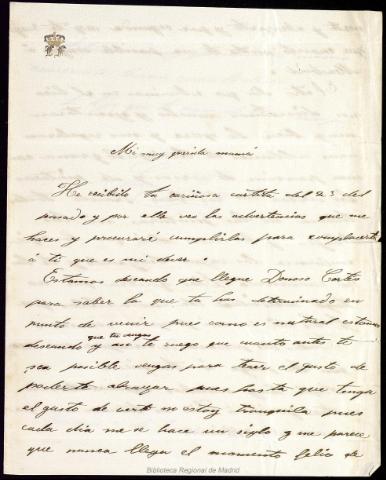 Mi muy querida mamá
He recibido tu cariñosa cartita del 23 del
pasado y por ella veo las advertencias que me
haces y procuraré cumplirlas para complacerte
á ti que es mi deber.
Estamos deseando que llegue Donoso Cortés
para saber lo que tu has determinado en
punto de venir pues como es natural estamos
que tu vengas
deseando y asi te ruego que cuanto antes te
sea posible vengas para tener el gusto de
poderte abrazar pues hasta que tenga
el gusto de verte no estoy tranquila pues
cada dia me se hace un siglo y me parece
que nunca llega el momento feliz de
Biblioteca Regional de Madrid